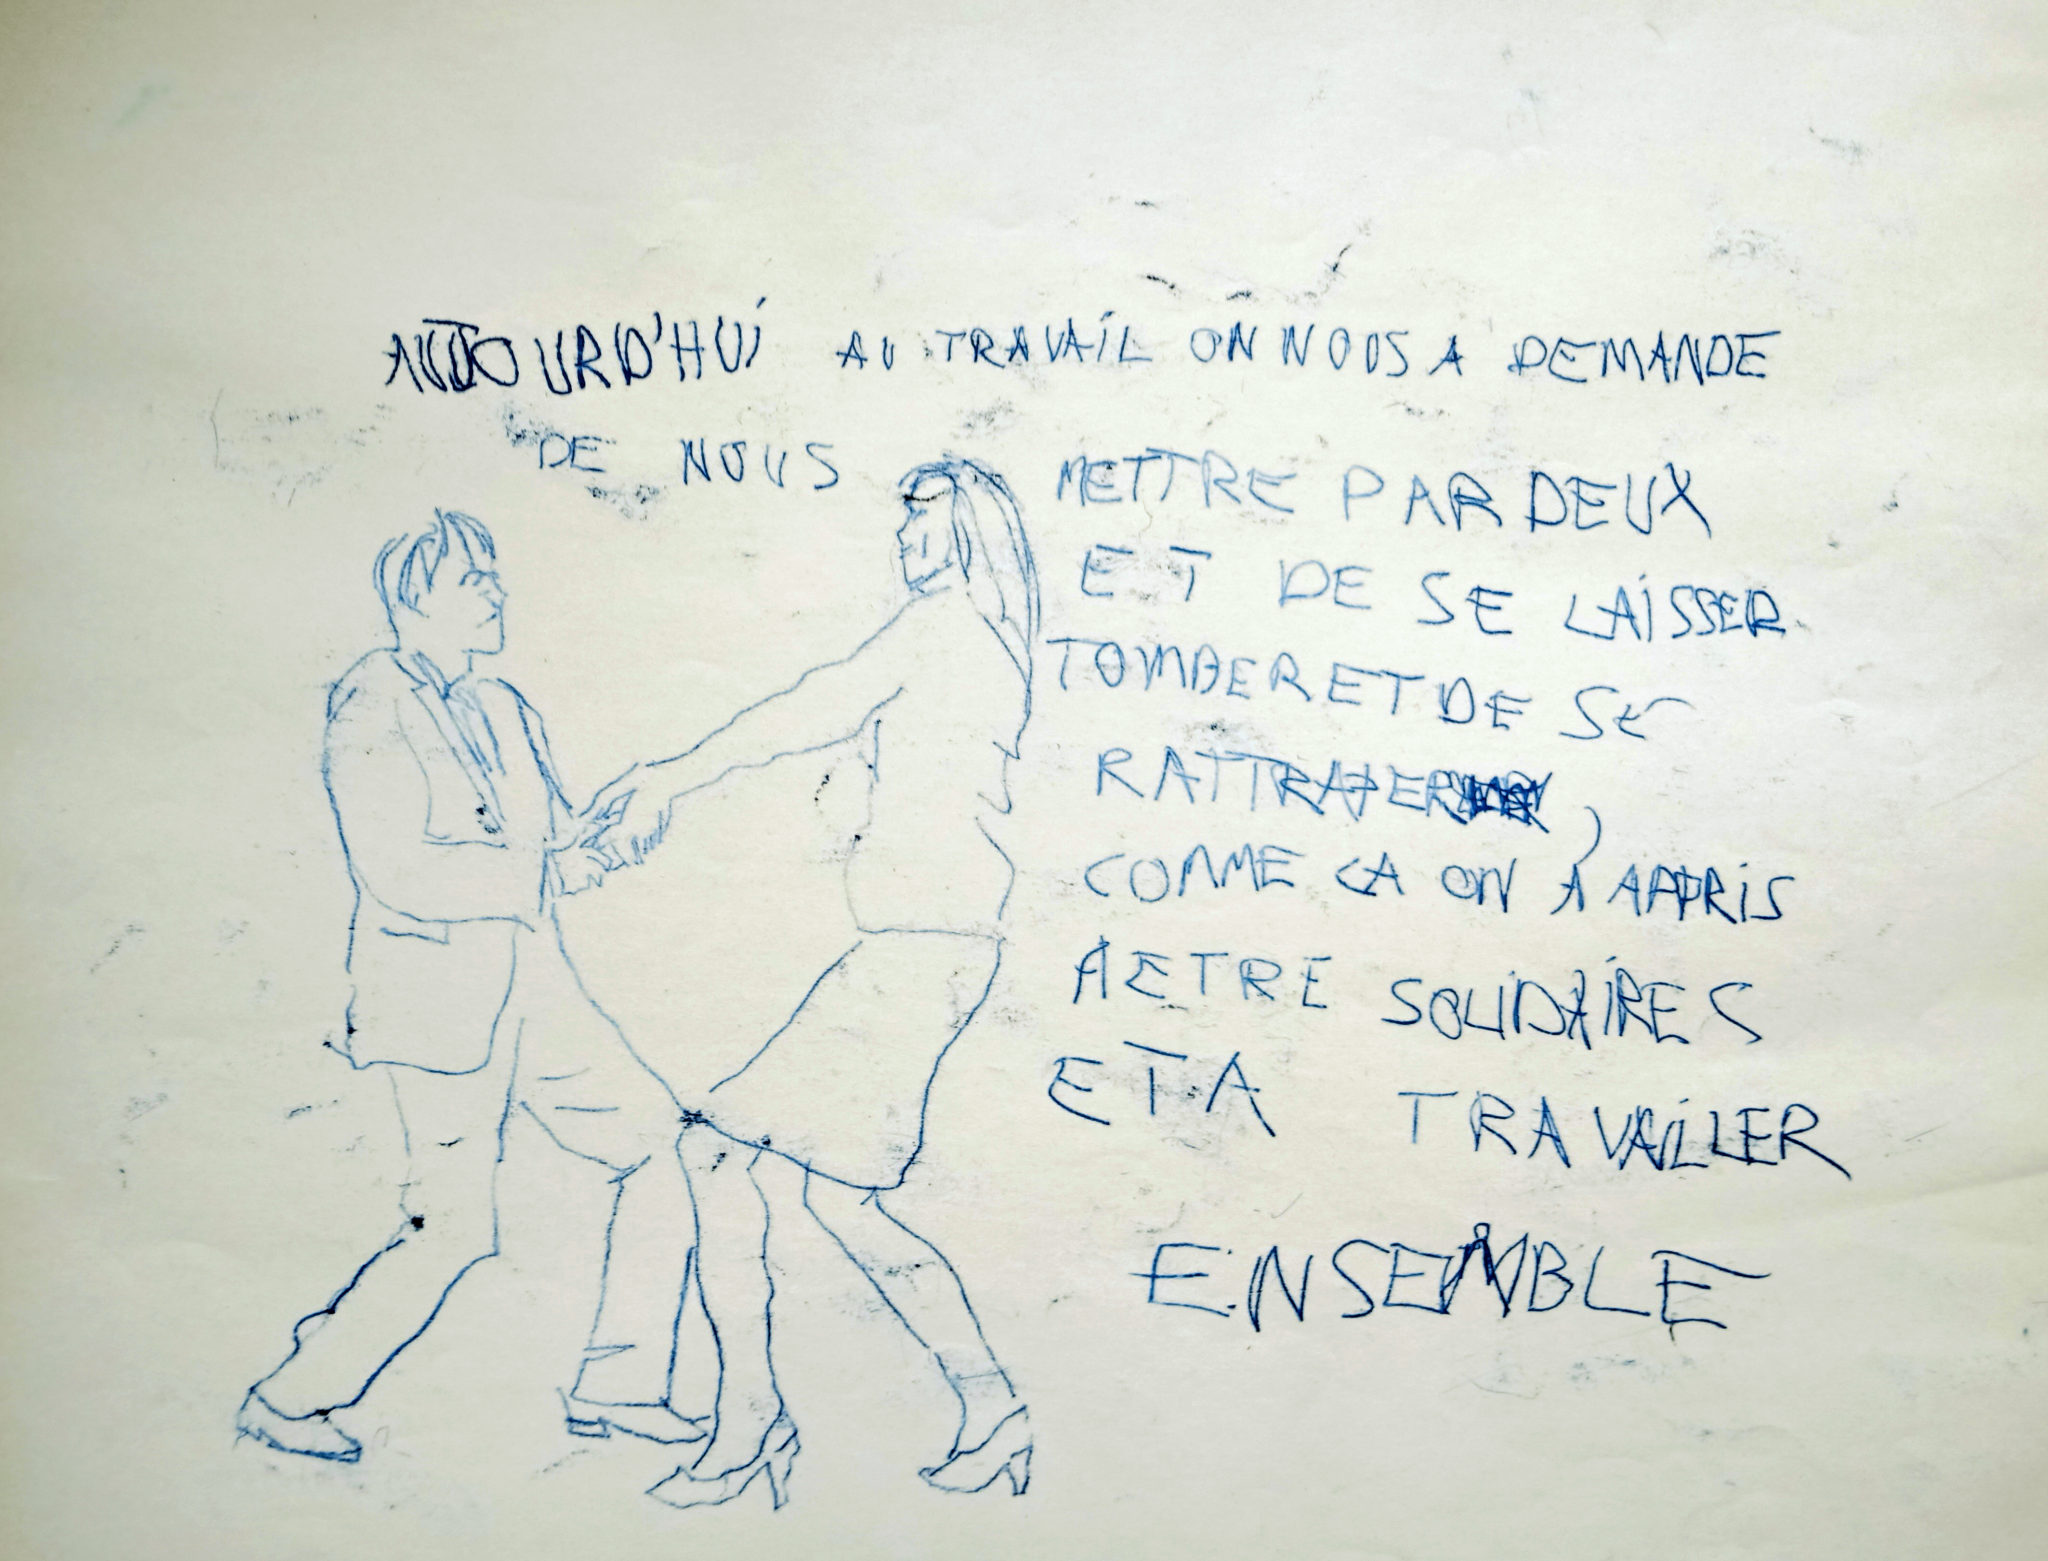 AUJOURD'HUI AU TRAVAIL ON NOUS A DEMANDE
DE NOUS METTRE PAR DEUX
ET DE SE LAISSER
TOMBER ET DE SE
RATTRAPER,
COMME CA ON A APPRIS
A ETRE SOLIDAIRES
ET A TRAVAILLER
ENSEMBLE